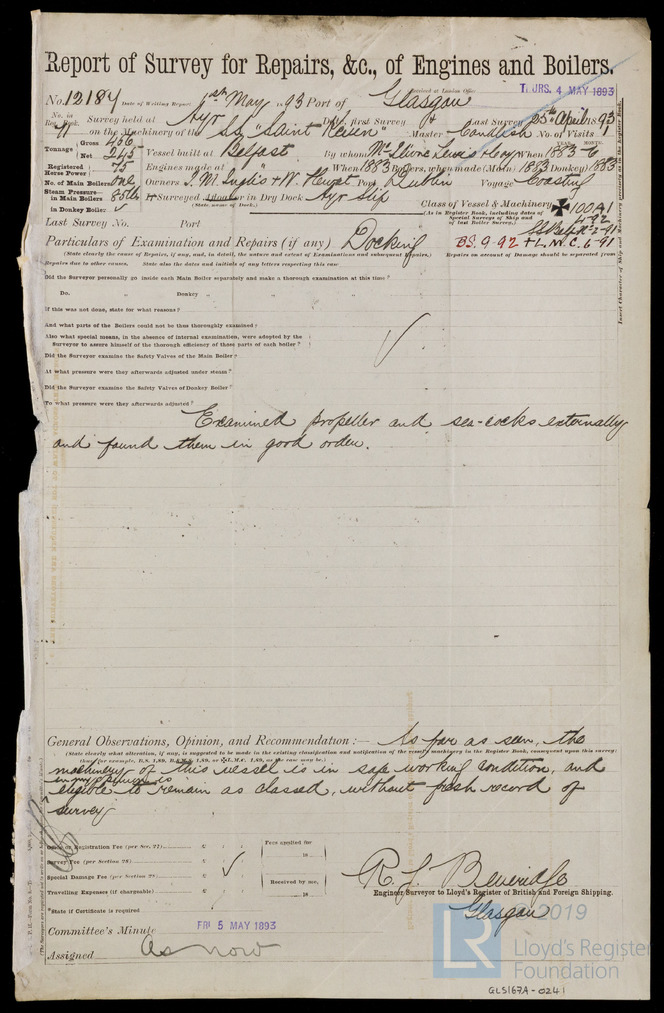 Report of Survey for Repairs, &c., of Engines and Boilers.
Received at London Office THURS. 4 MAY 1893
No. 12184 Date of Writing Report 1st May 1893 Port of Glasgow
No. in Reg. Book. 11 Survey held at Ayr Date, first Survey & Last Survey 25th April 1893
on the Machinery of the S.S. "Saint Kevin" Master Candlish No. of Visits 1
Tonnage Gross 456 Net 245 Vessel built at Belfast By whom McIlwaine Lewis & Coy When 1883-6
YEAR. MONTH.
Registered Horse Power 75 Engines made at " When 1883 Boilers, when made (Main) 1883 (Donkey) 1883
No. of Main Boilers one Owners T. M. Inglis & W. Hewat Port Dublin Voyage Coasting
Steam Pressure in Main Boilers 80 lbs If Surveyed Afloat or in Dry Dock Ayr Slip
in Donkey Boiler ✓ (State name of Dock.)
Class of Vessel & Machinery ✠100A1
(As in Register Book, including dates of Special Surveys of Ship and of last Boiler Survey.)
4-92
Last Survey No. Port
B.S. 9-92 + L.M.C. 6-91
Particulars of Examination and Repairs (if any) Docking
(State clearly the cause of Repairs, if any, and, in detail, the nature and extent of Examinations and subsequent Repairs.) Repairs on account of Damage should be separated from
Repairs due to other causes. State also the dates and initials of any letters respecting this case
Did the Surveyor personally go inside each Main Boiler separately and make a thorough examination at this time?
Do. " Donkey " " "
If this was not done, state for what reasons?
And what parts of the Boilers could not be thoroughly examined?
Also what special means, in the absence of internal examination, were adopted by the
Surveyor to assure himself of the thorough efficiency of those parts of each boiler?
✓
Did the Surveyor examine the Safety Valves of the Main Boiler?
At what pressure were they afterwards adjusted under steam?
Did the Surveyor examine the Safety Valves of Donkey Boiler?
To what pressure were they afterwards adjusted?
Examined propeller and sea-cocks externally
and found them in good order.
General Observations, Opinion, and Recommendation:— As far as seen, the
(State clearly what alteration, if any, is suggested to be made in the existing classification and notification of the vessel's machinery in the Register Book, consequent upon this survey;
thus for example, B.S. 1,89, B.&M.S. 1,89, or ✠L.M.C. 1,89, as the case may be.)
machinery of this vessel is in safe working condition, and
in my opinion is
eligible to remain as classed, without fresh record of
survey
Office or Registration Fee (per Sec. 27) £ : :
Survey Fee (per Section 28) £ : :
Special Damage Fee (per Section 28) £ ✓
Travelling Expenses (if chargeable) £ : :
Fees applied for
18
Received by me,
18
*State if Certificate is required
R. J. Beveridge
Engineer Surveyor to Lloyd's Register of British and Foreign Shipping.
Glasgow
Committee's Minute FRI 5 MAY 1893
Assigned As now
LR
©2019
Lloyd's Register
Foundation
GLS167A-0241